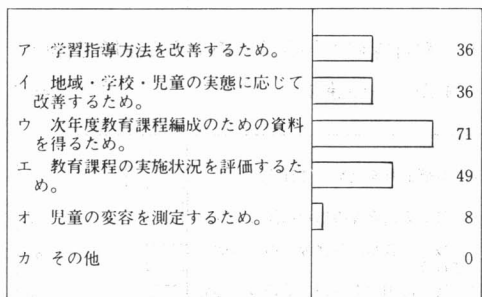 ア 学習指導方法を改善するため。 36
イ 地域・学校・児童の実態に応じて 36
改善するため。
ウ 次年度教育課程編成のための資料 71
を得るため。
エ 教育課程の実施状況を評価するた 49
め。
オ 児童の変容を測定するため。 8
カ その他 0